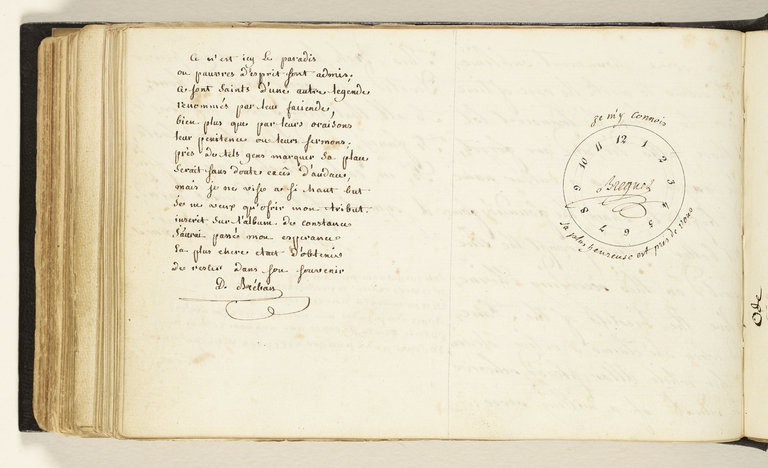 Ce n'est icy le paradis
ou pauvres d'esprit sont admis,
Ce sont Saints d'une autre legende
renommés par leur faciende,
bien plus que par leurs oraisons
leur penitence ou leurs sermons.
près de tels gens marquer sa place
Serait sans doute excès d'audace,
mais je ne vise a si haut but
Je ne veux qu'ofrir mon tribut.
inscrit sur l'album de constance
J'aurai passé mon esperance
La plus chere etait d'obtenir
de rester dans son souvenir
D. Bréban
je m'y connois
12
1
2
3
4
5
6
7
8
9
10
11
Breguet
la plus heureuse est près de vous
Ode